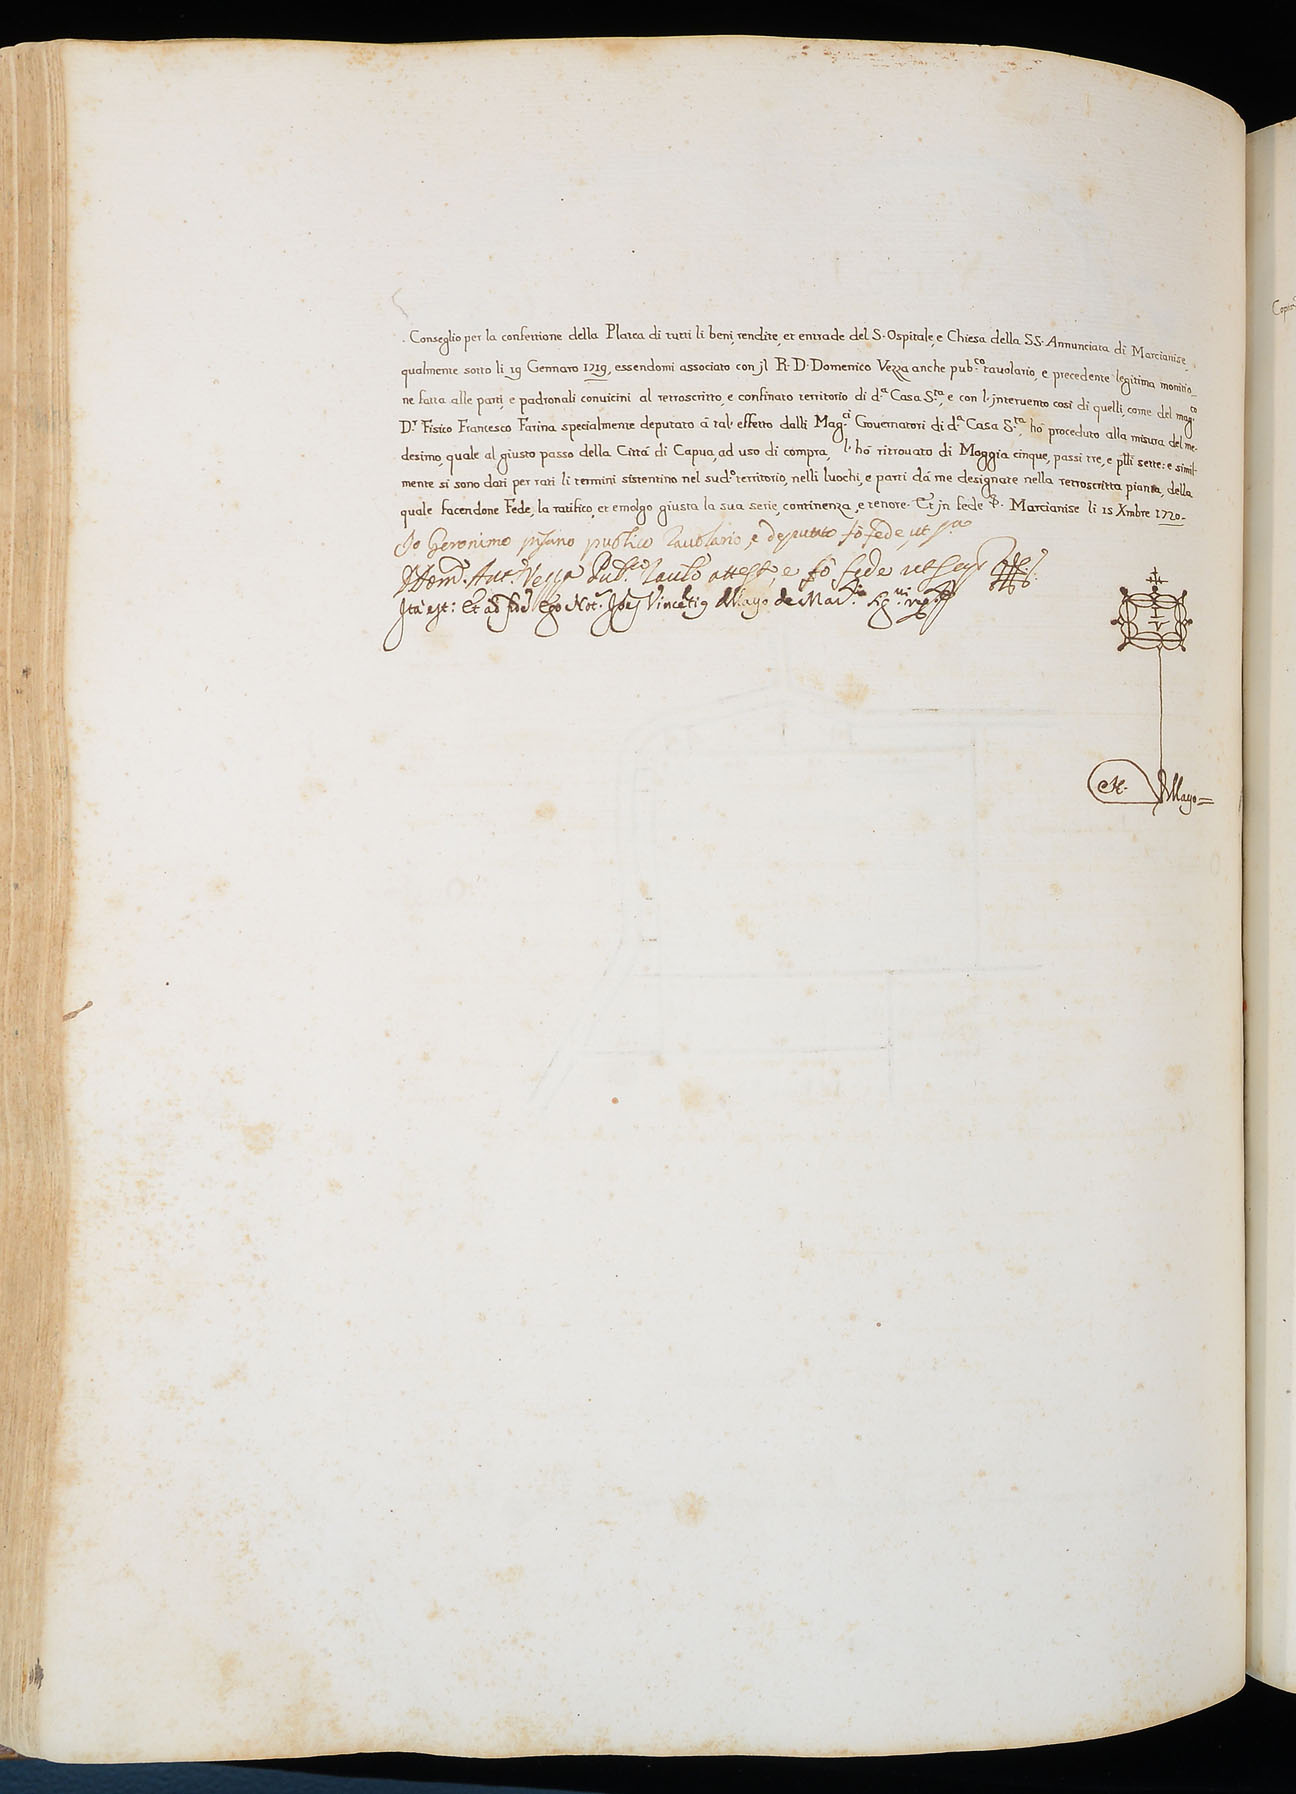 Conseglio per la confettione della Platea di tutti li beni, rendite, et entrade del S. Ospitale, e Chiesa della SS. Annunciata di Marcianise,
qualmente sotto li 19 Gennaro 1719, essendomi associato con jl R. D. Domenico Vezza anche pub.co tauolario, e precedente legitima monitio_
ne fatta alle parti, e padronali conuicini al retroscritto, e confinato territorio di d.a Casa S.ta, e con l'jnteruento così di quelli, come del mag.co
D.r Fisico Francesco Farina specialmente deputato à tal' effetto dalli Mag.ci Gouernatori di d.a Casa S.ta, hò proceduto alla misura del me-
desimo, quale al giusto passo della Città di Capua, ad uso di compra, l'hò ritrouato di Moggia cinque, passi tre, e p̄lli sette: e simil-
mente si sono dati per rati li termini sistentino nel sud.o territorio, nelli luochi, e parti dà me designate nella retroscritta pianta, della
quale facendone Fede, la ratifico, et emolgo giusta la sua serie, continenza, e tenore. Et jn fede &. Marcianise li 15 Xmbre 1720.
Io Geronimo pisano publico tauolario, e deputato fò fede, ut s.a
D. Dom.co Ant.o Vezza Pub.co Taulo attest, e fò fede ut sup.a
Ita est: Et in fidē Ego Not.s Vincētiꝯ Mayo de Mar.
N. Mayo=
Copia